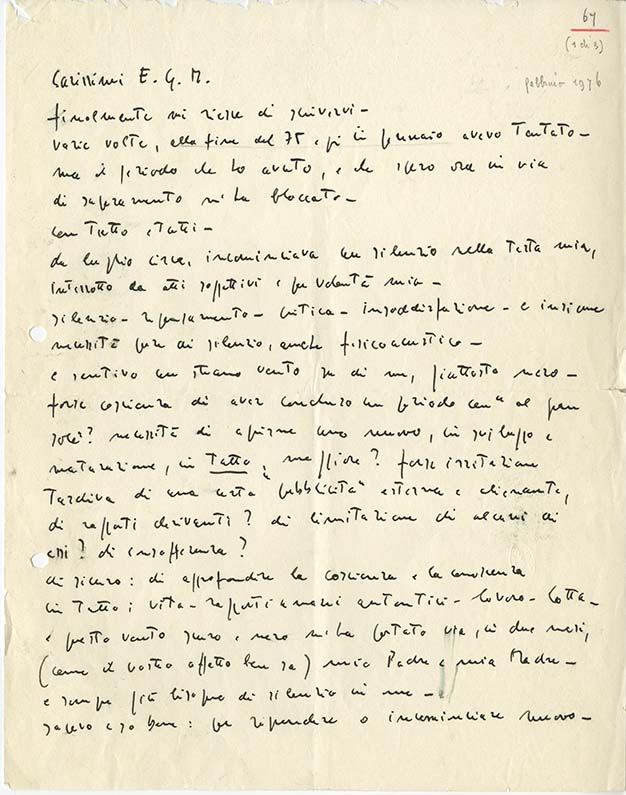 67
(1 di 3)
febbraio 1976
Carissimi E. G. M.
finalmente mi riesce di scrivervi –
varie volte, alla fine del 75 e poi in gennaio avevo tentato –
ma il periodo che ho avuto, e che spero ora in via
di superamento mi ha bloccato –
con tutto e tutti –
da luglio circa, incominciava un silenzio nella testa mia,
interrotto da atti soggettivi e per volontà mia –
silenzio – ripensamento – critica – insoddisfazione – e insieme
necessità pure di silenzio, anche fisicoacustico –
e sentivo un strano vento su di me, piuttosto nero –
forse coscienza di aver concluso un periodo con "al gran
sole"? necessità di aprirne uno nuovo, in sviluppo e
maturazione, in tutto, maggiore? forse irritazione
tardiva di una certa "pubblicità" esterna e alienante,
di rapporti derivanti? di limitazione di alcuni di
essi? di insofferenza?
di sicuro: di approfondire la coscienza e la conoscenza
in tutto: vita – rapporti umani autentici – lavoro – lotta –
e questo vento scuro e nero mi ha portato via, in due mesi,
(come il vostro affetto ben sa) mio Padre e mia Madre –
e sempre più bisogno di silenzio in me –
sapevo e so bene: per riprendere o incominciare nuovo –